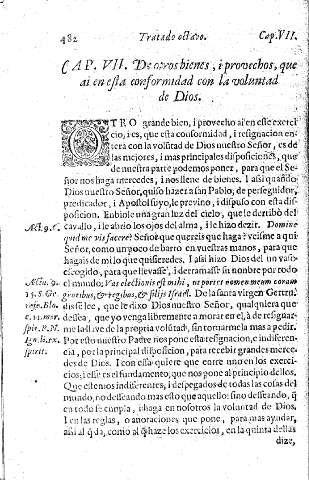 482 Tratado octavo. Cap. VII.
CAP. VII. De otros bienes, i provechos, que
ai en esta conformidad con la voluntad
de Dios.
OTRO grande bien, i provecho ai en este exerci-
cio, i es, que esta conformidad, i resignacion en-
tera con la volūtad de Dios nuestro Señor, es de
las mejores, i mas principales disposiciones, que
de nuestra parte podemos poner, para que el Se-
ñor nos haga mercedes, i nos llene de bienes. I asi quādo
Dios nuestro Señor, quiso hazer a san Pablo, de perseguidor,
predicador, i Apostol suyo, le previno, i dispuso con esta dis-
posicion. Enbiole una gran luz del cielo, que le derribò del
Act. 9. 6. cavallo, i le abrio los ojos del alma, i le hizo dezir. Domine
quid me vis facere? Señor que quereis que haga? veisme aqui
Señor, como un poco de barro en vuestras manos, para que
hagais de mi lo que quisieredes. I asi hizo Dios del un vaso
escogido, para que llevasse, i derramasse su nombre por todo
Actu. 9. el mundo: Vas electionis est mihi, ut portet nomen meum coram
15. S. Ge gentibus, & regibus, & filijs Israel. De la santa virgen Gertru
Blo. dis se lee, que le dixo Dios nuestro Señor, qualquiera que
c. 11. mo. desea, que yo venga libremente a morar en el, à de resignar-
spir. P. N. me la llave de la propria volūtad, sin tornarmela mas a pedir.
Ign. li. ex. Por esto nuestro Padre nos pone esta resignacion, e indiferen-
spirit. cia, por la principal disposiciō, para recebir grandes merce-
des de Dios. I con essa quiere que entre uno en los exerci-
cios; i esse es el fundamento, que nos pone al principio dellos.
Que estemos indiferentes, i despegados de todas las cosas del
mundo, no deseando mas esto que aquello: sino deseando, q̄
en todo se cunpla, i haga en nosotros la voluntad de Dios.
I en las reglas, o anotaciones que pone, para mas ayudar,
asi al q̄ da, como al q̄ haze los exercicios, en la quinta dellas
dize,